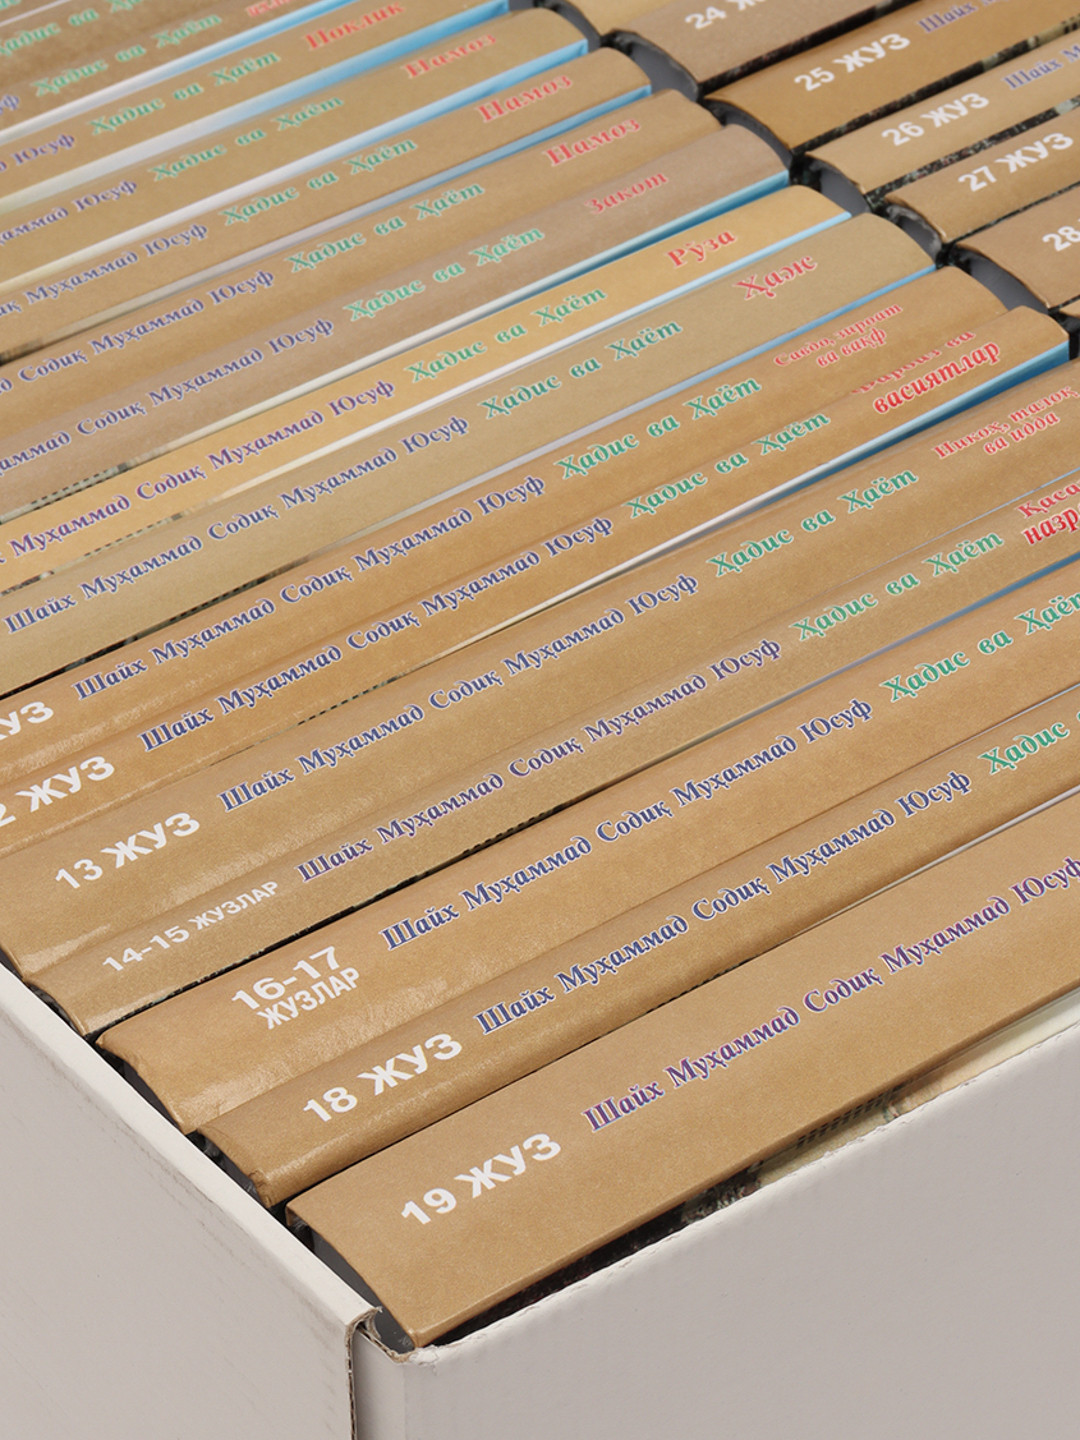 Ҳадис ва Ҳаёт
Юсуф Ҳадис ва Ҳаёт Поклик
Юсуф Ҳадис ва Ҳаёт Намоз
Муҳаммад Юсуф Ҳадис ва Ҳаёт Намоз
Муҳаммад Юсуф Ҳадис ва Ҳаёт Намоз
Содиқ Муҳаммад Юсуф Ҳадис ва Ҳаёт Закот
Муҳаммад Содиқ Муҳаммад Юсуф Ҳадис ва Ҳаёт Рўза
Шайх Муҳаммад Содиқ Муҳаммад Юсуф Ҳадис ва Ҳаёт Ҳаж
Шайх Муҳаммад Содиқ Муҳаммад Юсуф Ҳадис ва Ҳаёт Савдо, зироат
ва вақф
2 ЖУЗ Шайх Муҳаммад Содиқ Муҳаммад Юсуф Ҳадис ва Ҳаёт
васиятлар
13 ЖУЗ Шайх Муҳаммад Содиқ Муҳаммад Юсуф Ҳадис ва Ҳаёт Никоҳ, талоқ
ва идда
14-15 ЖУЗЛАР Шайх Муҳаммад Содиқ Муҳаммад Юсуф Ҳадис ва Ҳаёт
16-17
ЖУЗЛАР Шайх Муҳаммад Содиқ Муҳаммад Юсуф Ҳадис ва Ҳаёт
18 ЖУЗ Шайх Муҳаммад Содиқ Муҳаммад Юсуф Ҳадис
19 ЖУЗ Шайх Муҳаммад Содиқ Муҳаммад Юсуф
24
25 ЖУЗ Шайх
26 ЖУЗ Шайх
27 ЖУЗ
28